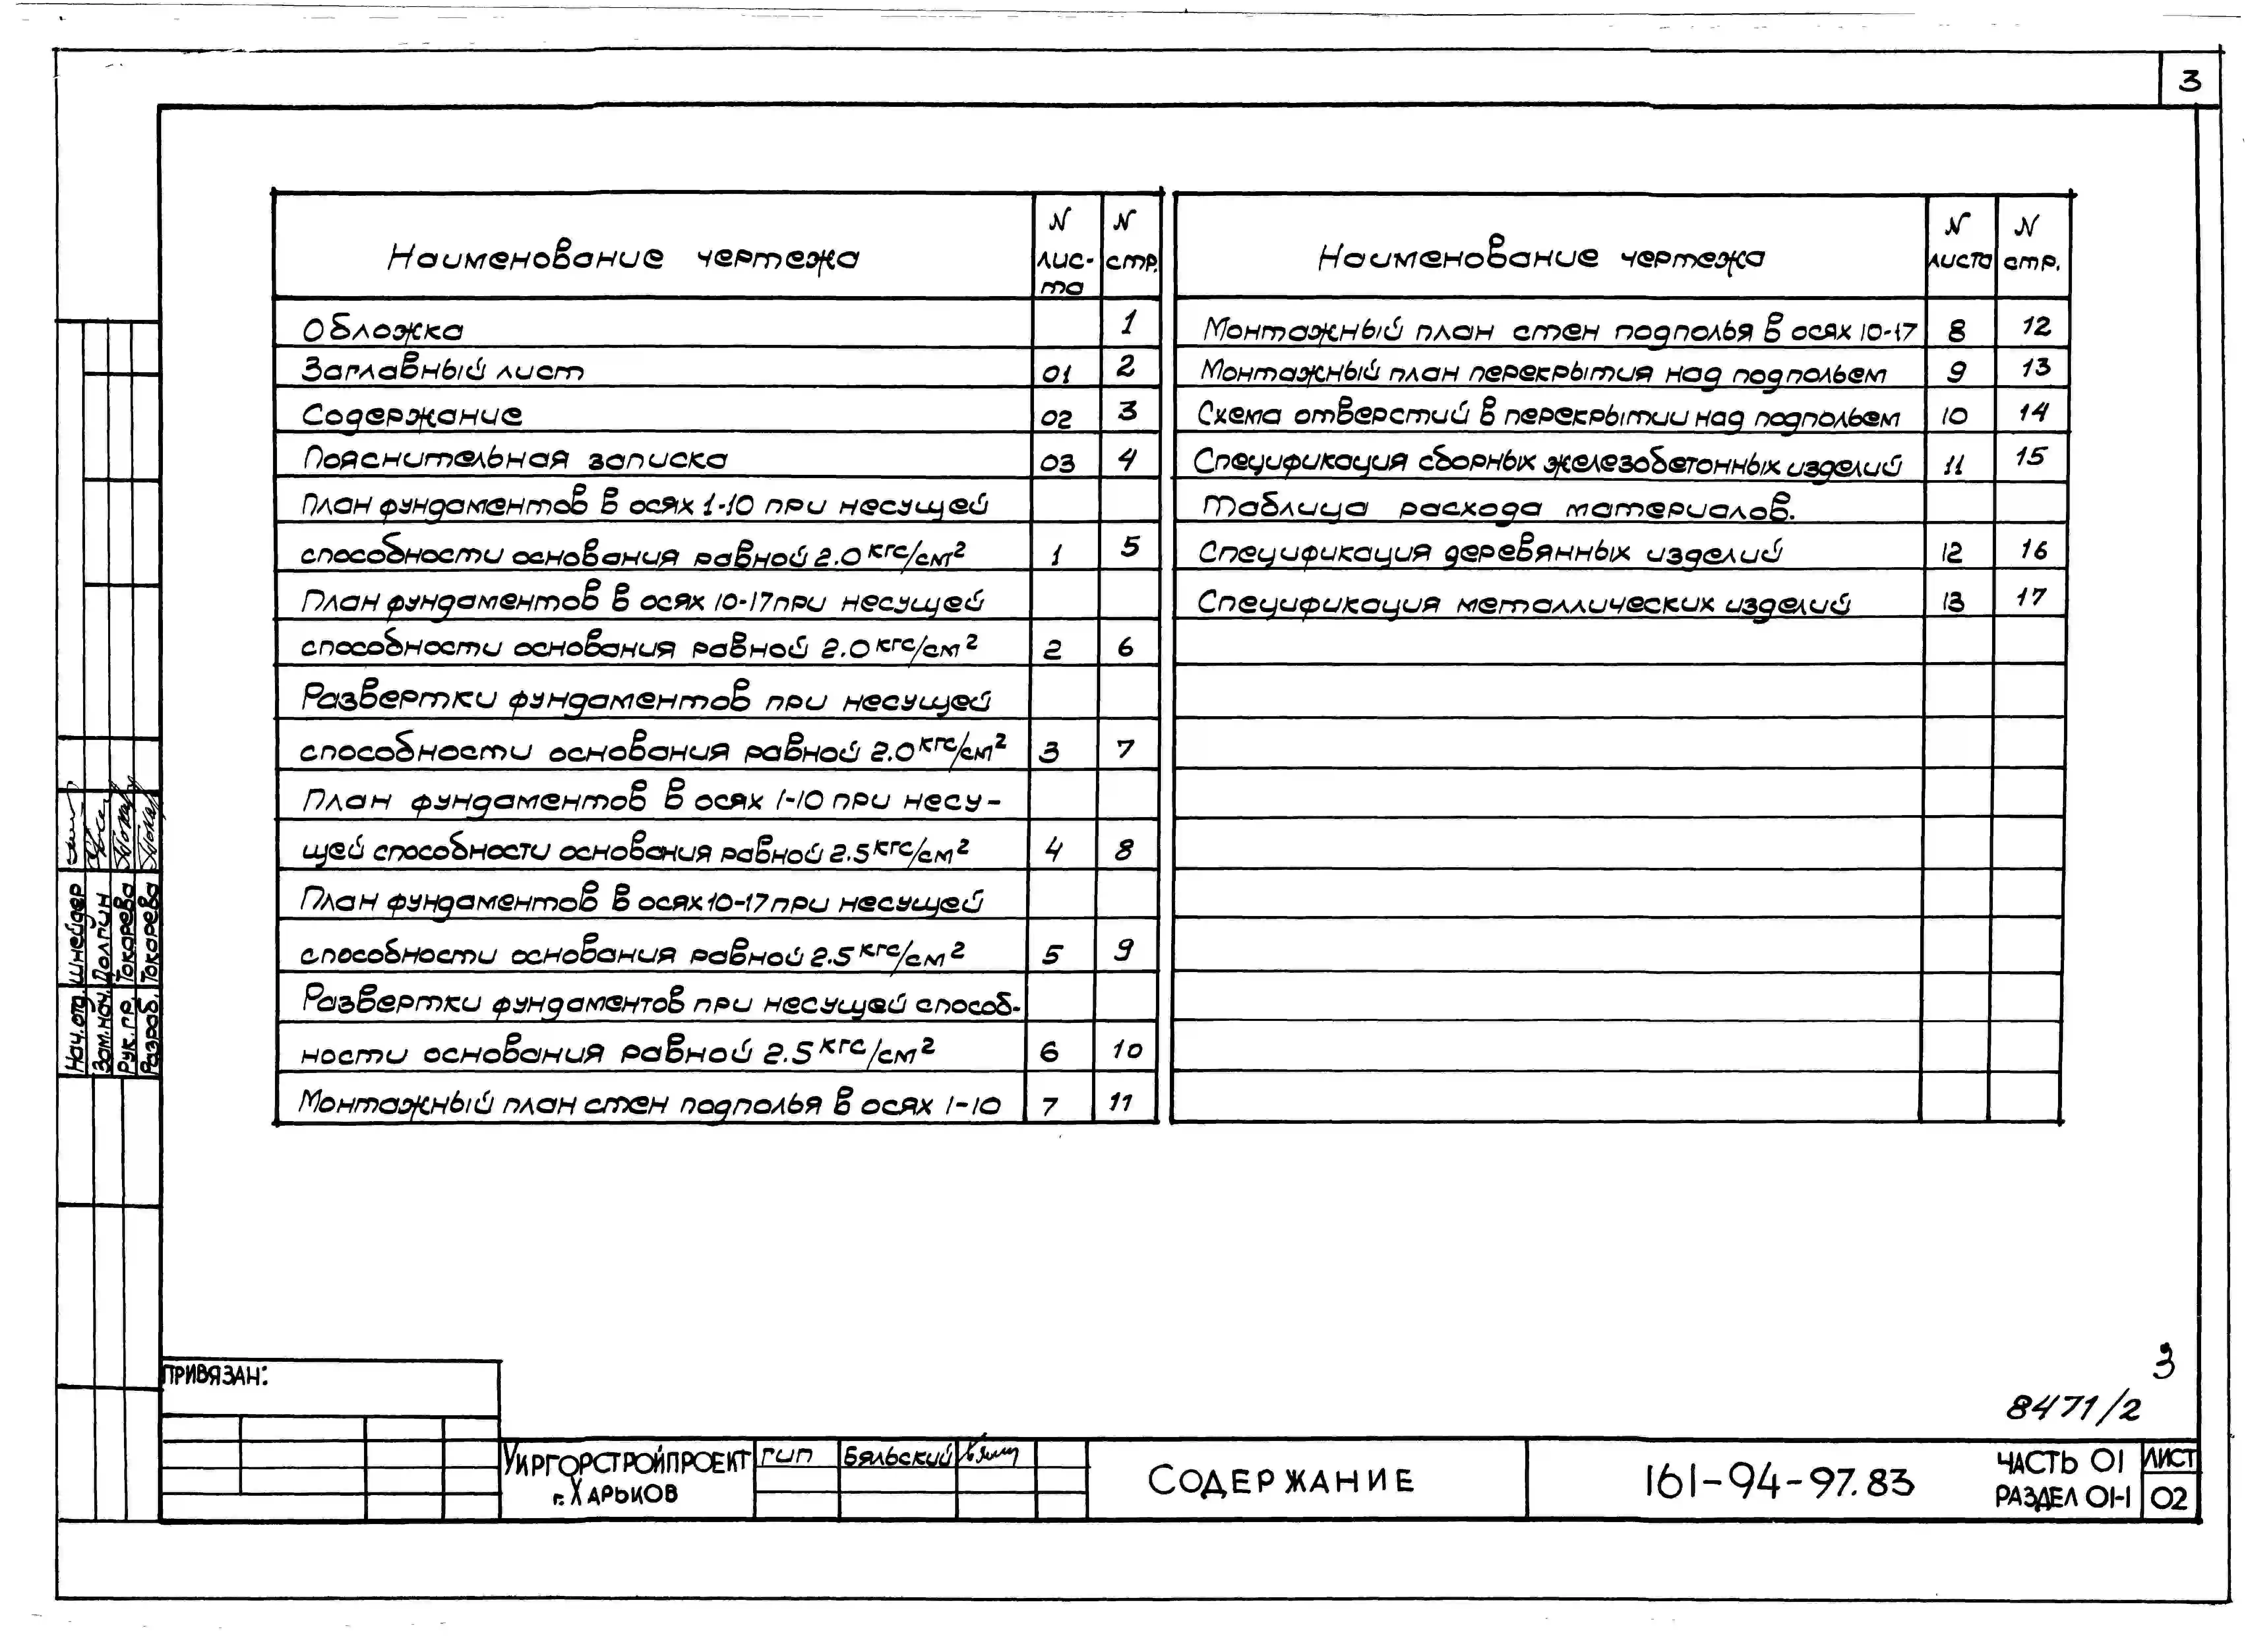 3
Наименование чертежа | N лис-та | N стр.
Обложка | | 1
Заглавный лист | 01 | 2
Содержание | 02 | 3
Пояснительная записка | 03 | 4
План фундаментов в осях 1-10 при несущей
способности основания равной 2.0 кгс/см² | 1 | 5
План фундаментов в осях 10-17 при несущей
способности основания равной 2.0 кгс/см² | 2 | 6
Развертки фундаментов при несущей
способности основания равной 2.0 кгс/см² | 3 | 7
План фундаментов в осях 1-10 при несу-
щей способности основания равной 2.5 кгс/см² | 4 | 8
План фундаментов в осях 10-17 при несущей
способности основания равной 2.5 кгс/см² | 5 | 9
Развертки фундаментов при несущей способ-
ности основания равной 2.5 кгс/см² | 6 | 10
Монтажный план стен подполья в осях 1-10 | 7 | 11
Наименование чертежа | N листа | N стр.
Монтажный план стен подполья в осях 10-17 | 8 | 12
Монтажный план перекрытия над подпольем | 9 | 13
Схема отверстий в перекрытии над подпольем | 10 | 14
Спецификация сборных железобетонных изделий | 11 | 15
Таблица расхода материалов.
Спецификация деревянных изделий | 12 | 16
Спецификация металлических изделий | 13 | 17
Нач. отд. Шнейдер
Зам. нач. Долгин
Рук. гр. Токарева
Разраб. Токарева
ПРИВЯЗАН:
3
8471/2
УКРГОРСТРОЙПРОЕКТ
г. ХАРЬКОВ
ГИП Бяльский
СОДЕРЖАНИЕ
161-94-97.83
ЧАСТЬ 01
РАЗДЕЛ 01-1
ЛИСТ
02